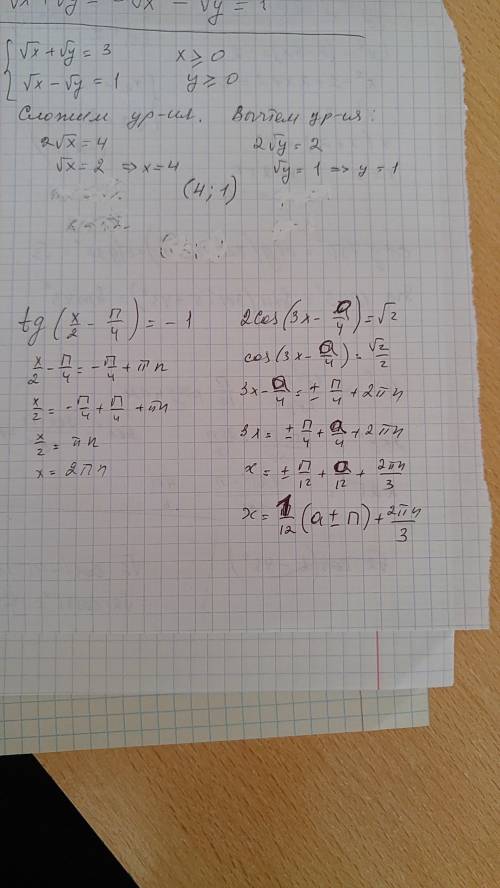 √x + √y = 3 x ≥ 0
√x − √y = 1 y ≥ 0
Сложим ур-ия. Вычтем ур-ия:
2√x = 4 2√y = 2
√x = 2 ⇒ x = 4 √y = 1 ⇒ y = 1
(4; 1)
tg(x/2 − π/4) = −1
x/2 − π/4 = −π/4 + πn
x/2 = −π/4 + π/4 + πn
x/2 = πn
x = 2πn
2cos(3x − a/4) = √2
cos(3x − a/4) = √2/2
3x − a/4 = ± π/4 + 2πn
3x = ± π/4 + a/4 + 2πn
x = ± π/12 + a/12 + 2πn/3
x = 1/12 (a ± π) + 2πn/3